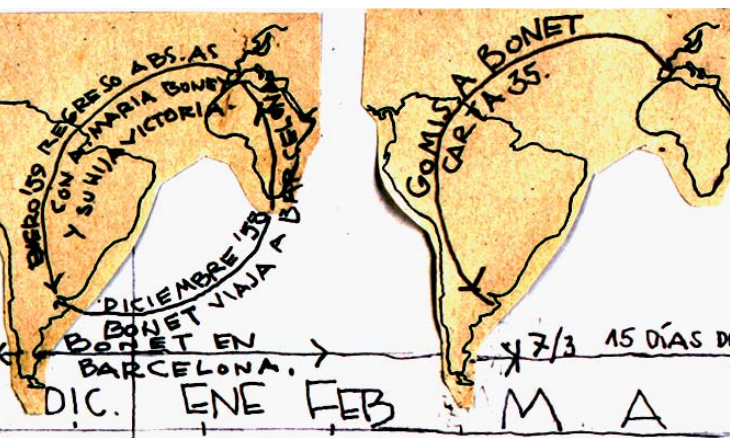 ENERO '59 REGRESO A BS. AS
CON A. MARIA BONET
Y SU HIJA VICTORIA.
DICIEMBRE '58
BONET VIAJA A BARCELONA
BONET EN
BARCELONA.
GOMIS A BONET
CARTA 35.
7/3 15 DÍAS DE
DIC. ENE FEB M A